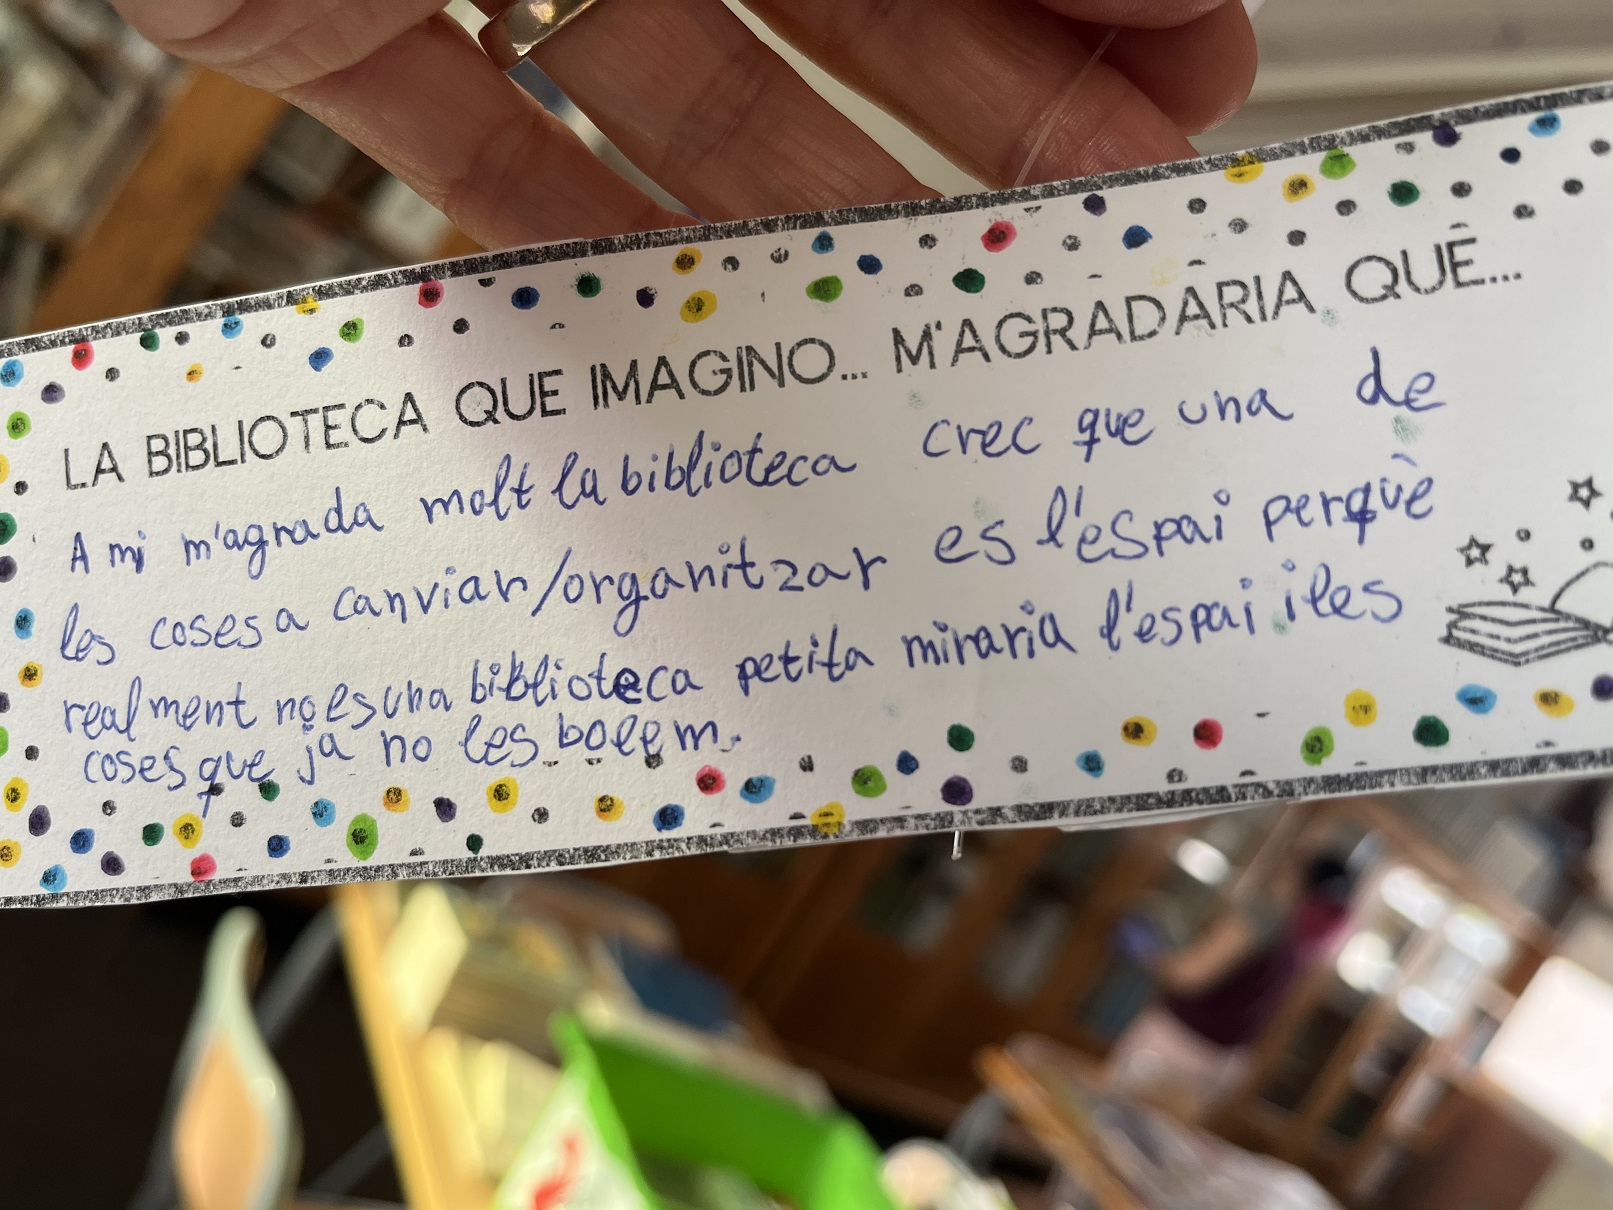 LA BIBLIOTECA QUE IMAGINO... M'AGRADARIA QUÈ...
A mi m'agrada molt la biblioteca crec que una de
les coses a canviar/organitzar es l'espai perquè
realment no es una biblioteca petita miraria l'espai i les
coses que ja no les bolem.